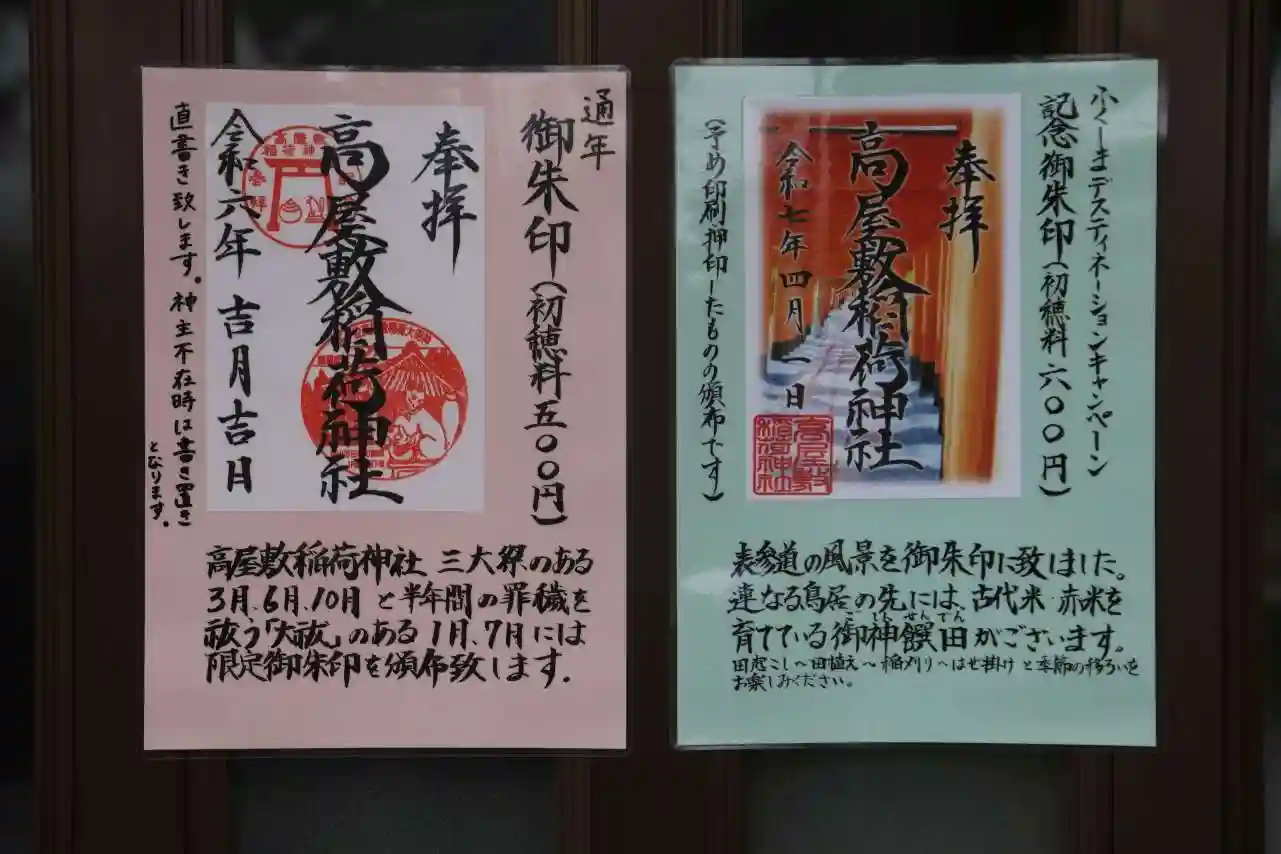 通年
御朱印(初穂料五〇〇円)
奉拝
高屋敷稲荷神社
令和六年 吉月吉日
直書き致します。神主不在時は書き置き
となります。
高屋敷稲荷神社 三大祭のある
3月、6月、10月 と半年間の罪穢を
祓う「大祓」のある 1月、7月には
限定御朱印を頒布致します.
ふくしまデスティネーションキャンペーン
記念御朱印(初穂料六〇〇円)
奉拝
高屋敷稲荷神社
令和七年四月一日
高屋敷
稲荷神社
(予め印刷押印したものの頒布です)
表参道の風景を御朱印に致しました。
連なる鳥居の先には、古代米 赤米を
育てている御神饌田がございます。
しんせんでん
田起こし〜田植え〜稲刈り〜はせ掛けと季節の移ろいを
お楽しみください。